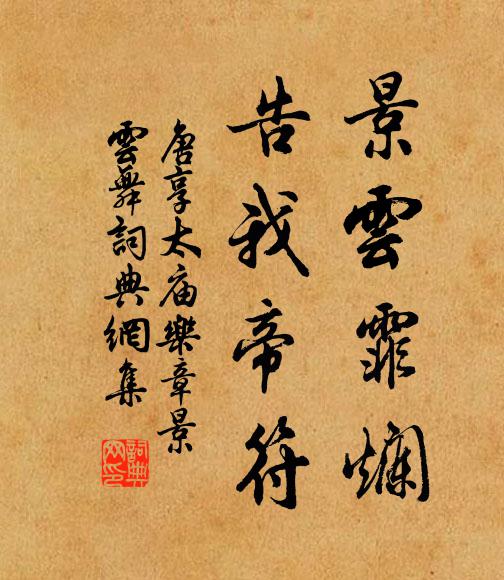 景雲霏爛
告我帝符
唐享太廟樂章景
雲舞詞典網集
詞典網印